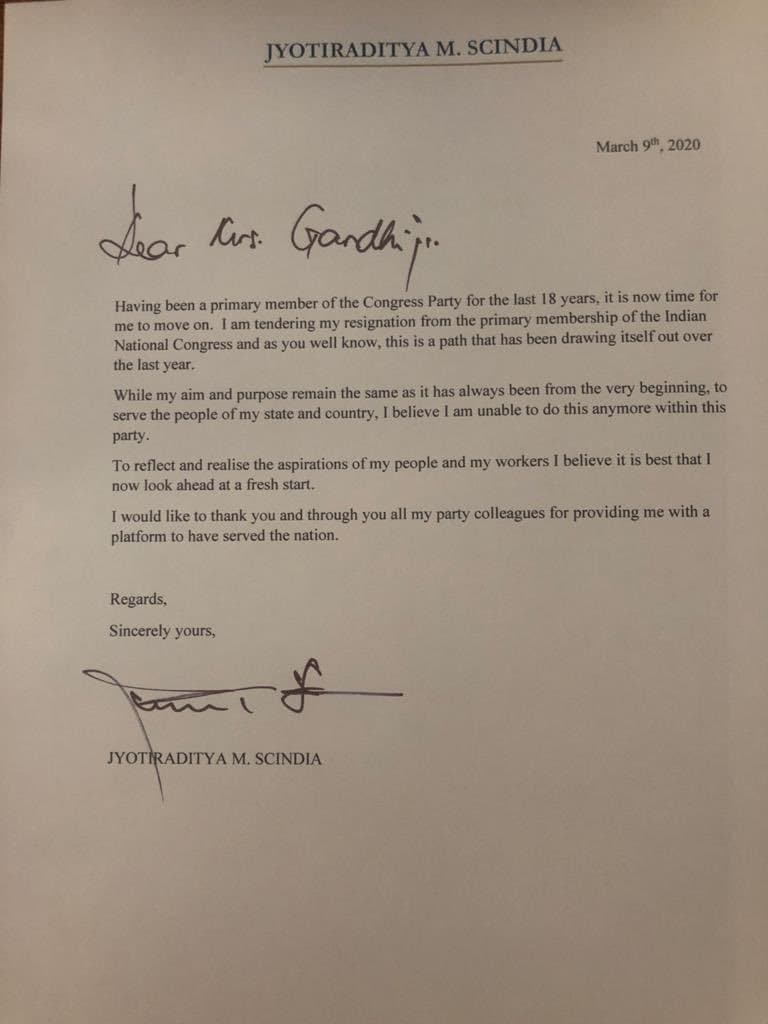 JYOTIRADITYA M. SCINDIA
March 9th, 2020
Dear Mrs. Gandhi ji.
Having been a primary member of the Congress Party for the last 18 years, it is now time for
me to move on. I am tendering my resignation from the primary membership of the Indian
National Congress and as you well know, this is a path that has been drawing itself out over
the last year.
While my aim and purpose remain the same as it has always been from the very beginning, to
serve the people of my state and country, I believe I am unable to do this anymore within this
party.
To reflect and realise the aspirations of my people and my workers I believe it is best that I
now look ahead at a fresh start.
I would like to thank you and through you all my party colleagues for providing me with a
platform to have served the nation.
Regards,
Sincerely yours,
JYOTIRADITYA M. SCINDIA